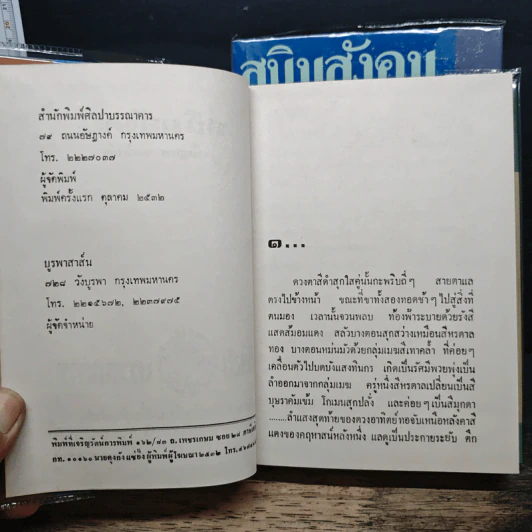 สนิมสังคม
สำนักพิมพ์ศิลปาบรรณาคาร
๗๙ ถนนอัษฎางค์ กรุงเทพมหานคร
โทร. ๒๒๒๗๐๓๗
ผู้จัดพิมพ์
พิมพ์ครั้งแรก ตุลาคม ๒๕๓๒
บูรพาสาส์น
๗๒๘ วังบูรพา กรุงเทพมหานคร
โทร. ๒๒๑๕๖๗๒, ๒๒๓๗๙๗๕
ผู้จัดจำหน่าย
พิมพ์ที่เจริญรัตน์การพิมพ์ ๑๖๒/๔๓ ถ.เพชรเกษม ซอย ๒๘
กท. ๑๐๑๖๐ ผู้พิมพ์ผู้โฆษณา ๒๕๓๒ โทร.
๑...
ดวงตาสีดำสุกใสคู่นั้นกะพริบถี่ๆ สายตาแล
ตรงไปข้างหน้า ขณะที่ขาทั้งสองทอดช้าๆ ไปสู่สิ่งที่
ตนมอง เวลานั้นจวนพลบ ท้องฟ้าระบายด้วยรังสี
แสดส้มอมแดง สลัวบางตอนสุกสว่างเหมือนสีหรดาล
ทอง บางตอนหม่นมัวด้วยกลุ่มเมฆสีเทาคล้ำ ที่ค่อยๆ
เคลื่อนตัวไปบดบังแสงทินกร เกิดเป็นรัศมีพวยพุ่งเป็น
ลำออกมาจากกลุ่มเมฆ คู่หนึ่งสีหรดาลเปลี่ยนเป็นสี
บุษราคัมเข้ม โกเมนสุกปลั่ง และค่อยๆ เป็นสีมุกดา
........ลำแสงสุดท้ายของดวงอาทิตย์ทอจับเหนือหลังคาสี
แดงของคฤหาสน์หลังหนึ่ง แลดูเป็นประกายระยับ ตึก